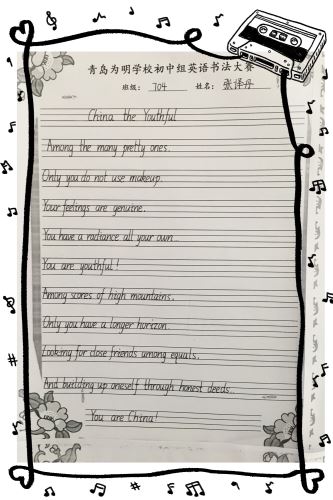 青岛为明学校初中组英语书法大赛
班级: 704 姓名: 张择丹
China the Youthful
Among the many pretty ones.
Only you do not use makeup.
Your feelings are genuine.
You have a radiance all your own.
You are youthful!
Among scores of high mountains.
Only you have a longer horizon.
Looking for close friends among equals.
And building up oneself through honest deeds.
You are China!